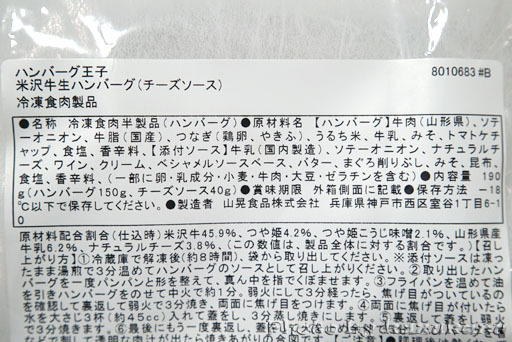 ハンバーグ王子
米沢牛生ハンバーグ(チーズソース)
8010683 #B
冷凍食肉製品
●名称 冷凍食肉半製品(ハンバーグ)●原材料名 【ハンバーグ】牛肉(山形県)、ソテ
ーオニオン、牛脂(国産)、つなぎ(鶏卵、やきふ)、うるち米、牛乳、みそ、トマトケチ
ャップ、食塩、香辛料、【添付ソース】牛乳(国内製造)、ソテーオニオン、ナチュラルチ
ーズ、ワイン、クリーム、ベシャメルソースベース、バター、まぐろ削りぶし、みそ、昆布、
食塩、香辛料、(一部に卵・乳成分・小麦・牛肉・大豆・ゼラチンを含む) ●内容量 190
g(ハンバーグ150g、チーズソース40g)●賞味期限 外箱側面に記載●保存方法 −18
℃以下で保存してください。●製造者 山晃食品株式会社 兵庫県神戸市西区室谷1丁目6-1
0
原材料配合割合(仕込時)米沢牛45.9%、つや姫4.2%、つや姫こうじ味噌2.1%、山形県産
牛乳6.2%、ナチュラルチーズ3.8%、(この数値は、製品全体に対する割合です。)【召し
上がり方】①冷蔵庫で解凍後(約8時間)、袋から出してください。※添付ソースは凍っ
たまま湯煎で3分温めてハンバーグのソースとして召し上がりください。②取り出したハン
バーグを一度パンパンと形を整えて、真ん中を指でくぼませます。③フライパンを温めて油
を引きハンバーグをのせて中火で約1分。弱火にして3分経ったら、焦げ目がついているの
を確認して裏返して弱火で3分焼き、両面に焦げ目をつけます。④両面に焦げ目が付いたら
水を大さじ3杯(約45cc)入れて蓋をし、3分蒸し焼きにします。⑤裏返して蓋をし
弱火で3分。⑥最後にもう一度裏返し、蓋